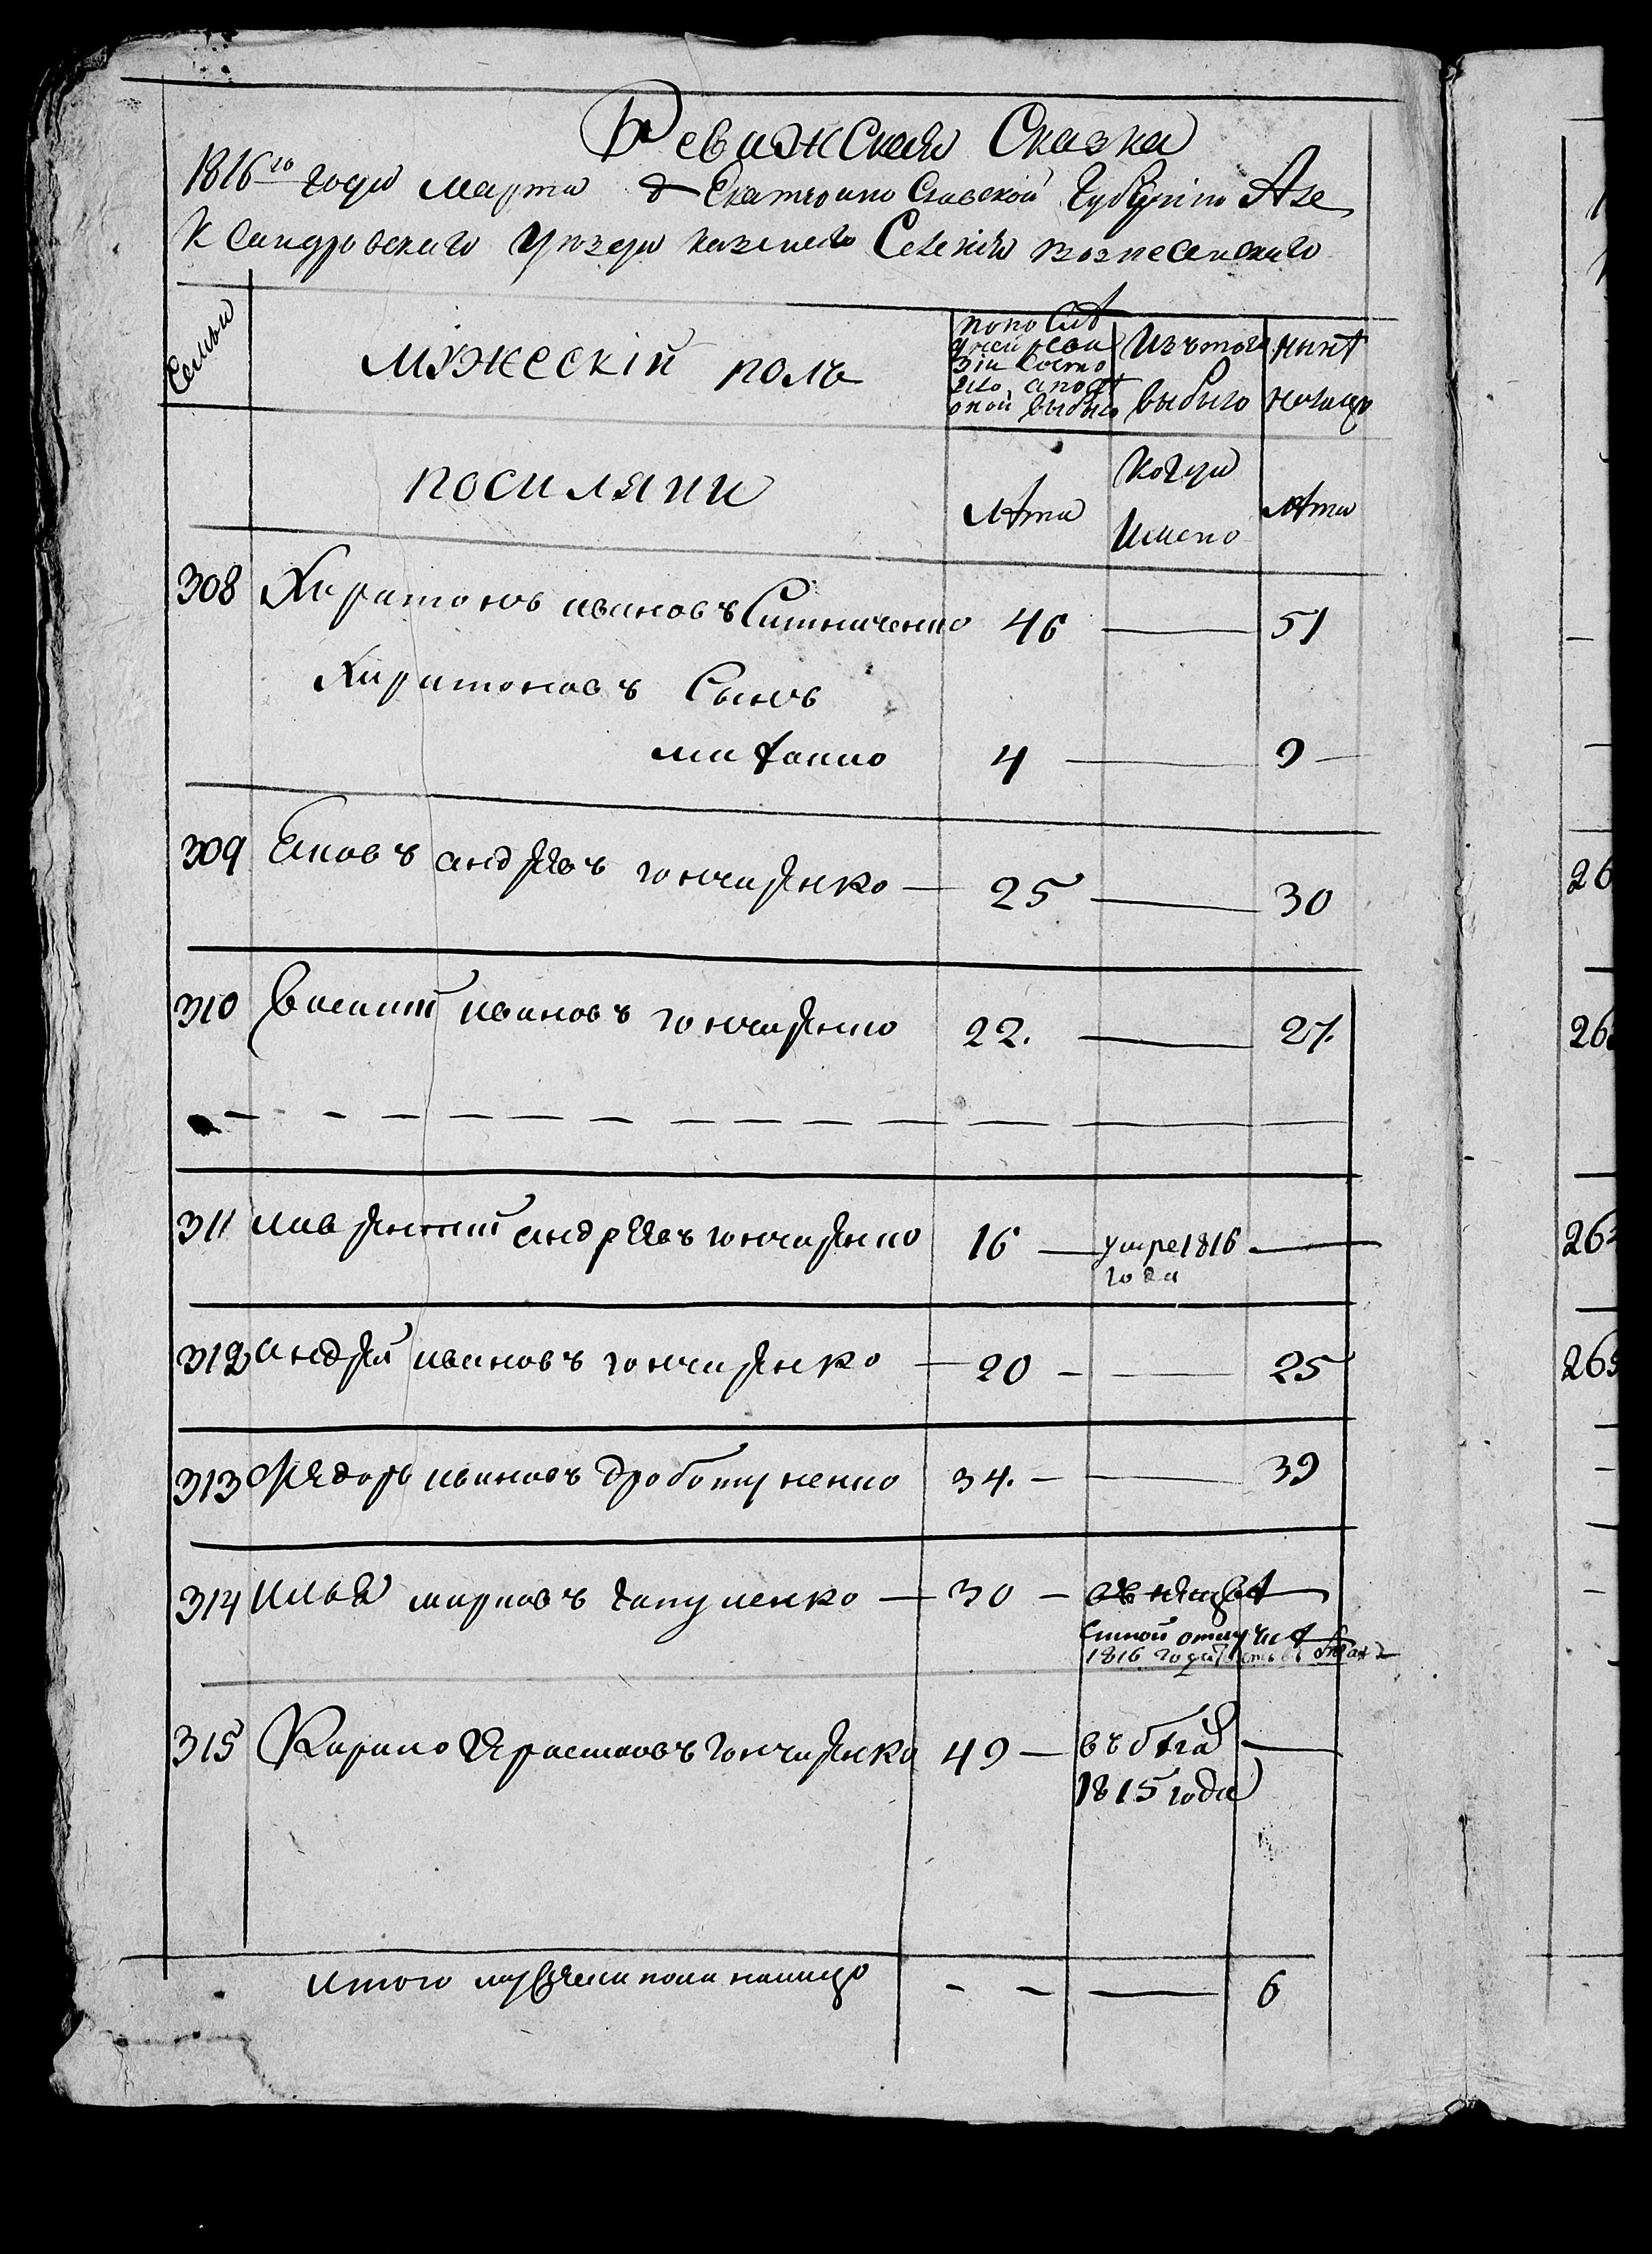 Ревижская Сказка
1816го года марта д Екатерино Славской губернии Але
ксандровского уезда казеннаго Селения вознесенскаго
Семьи
мужескій полъ
по по слѣ
дней реви
зіи Состо
яло, а послѣ
оной выбыло
Изъ того
выбыло
нынѣ
налицо
поселяни
лѣта
когда
Имено
лѣта
308 Харитонъ ивановъ Ситниченко 46 51
Харитоновъ Сынъ
митвъко 4 9
309 Яковъ андреевъ гончаренко 25 30
310 Василий ивановъ гончаренко 22. 27.
311 лаврентий андреевъ гончаренко 16 умре 1816
года
312 андрей ивановъ гончаренко 20 25
313 Федоръ ивановъ дроботуненко 34. 39
314 илья марковъ гапуленко 30
1816 года
315 Карпо Ерастовъ гончаренко 49 въ бега
1815 года
итого мужеска пола налицо 6
26
26
26
26